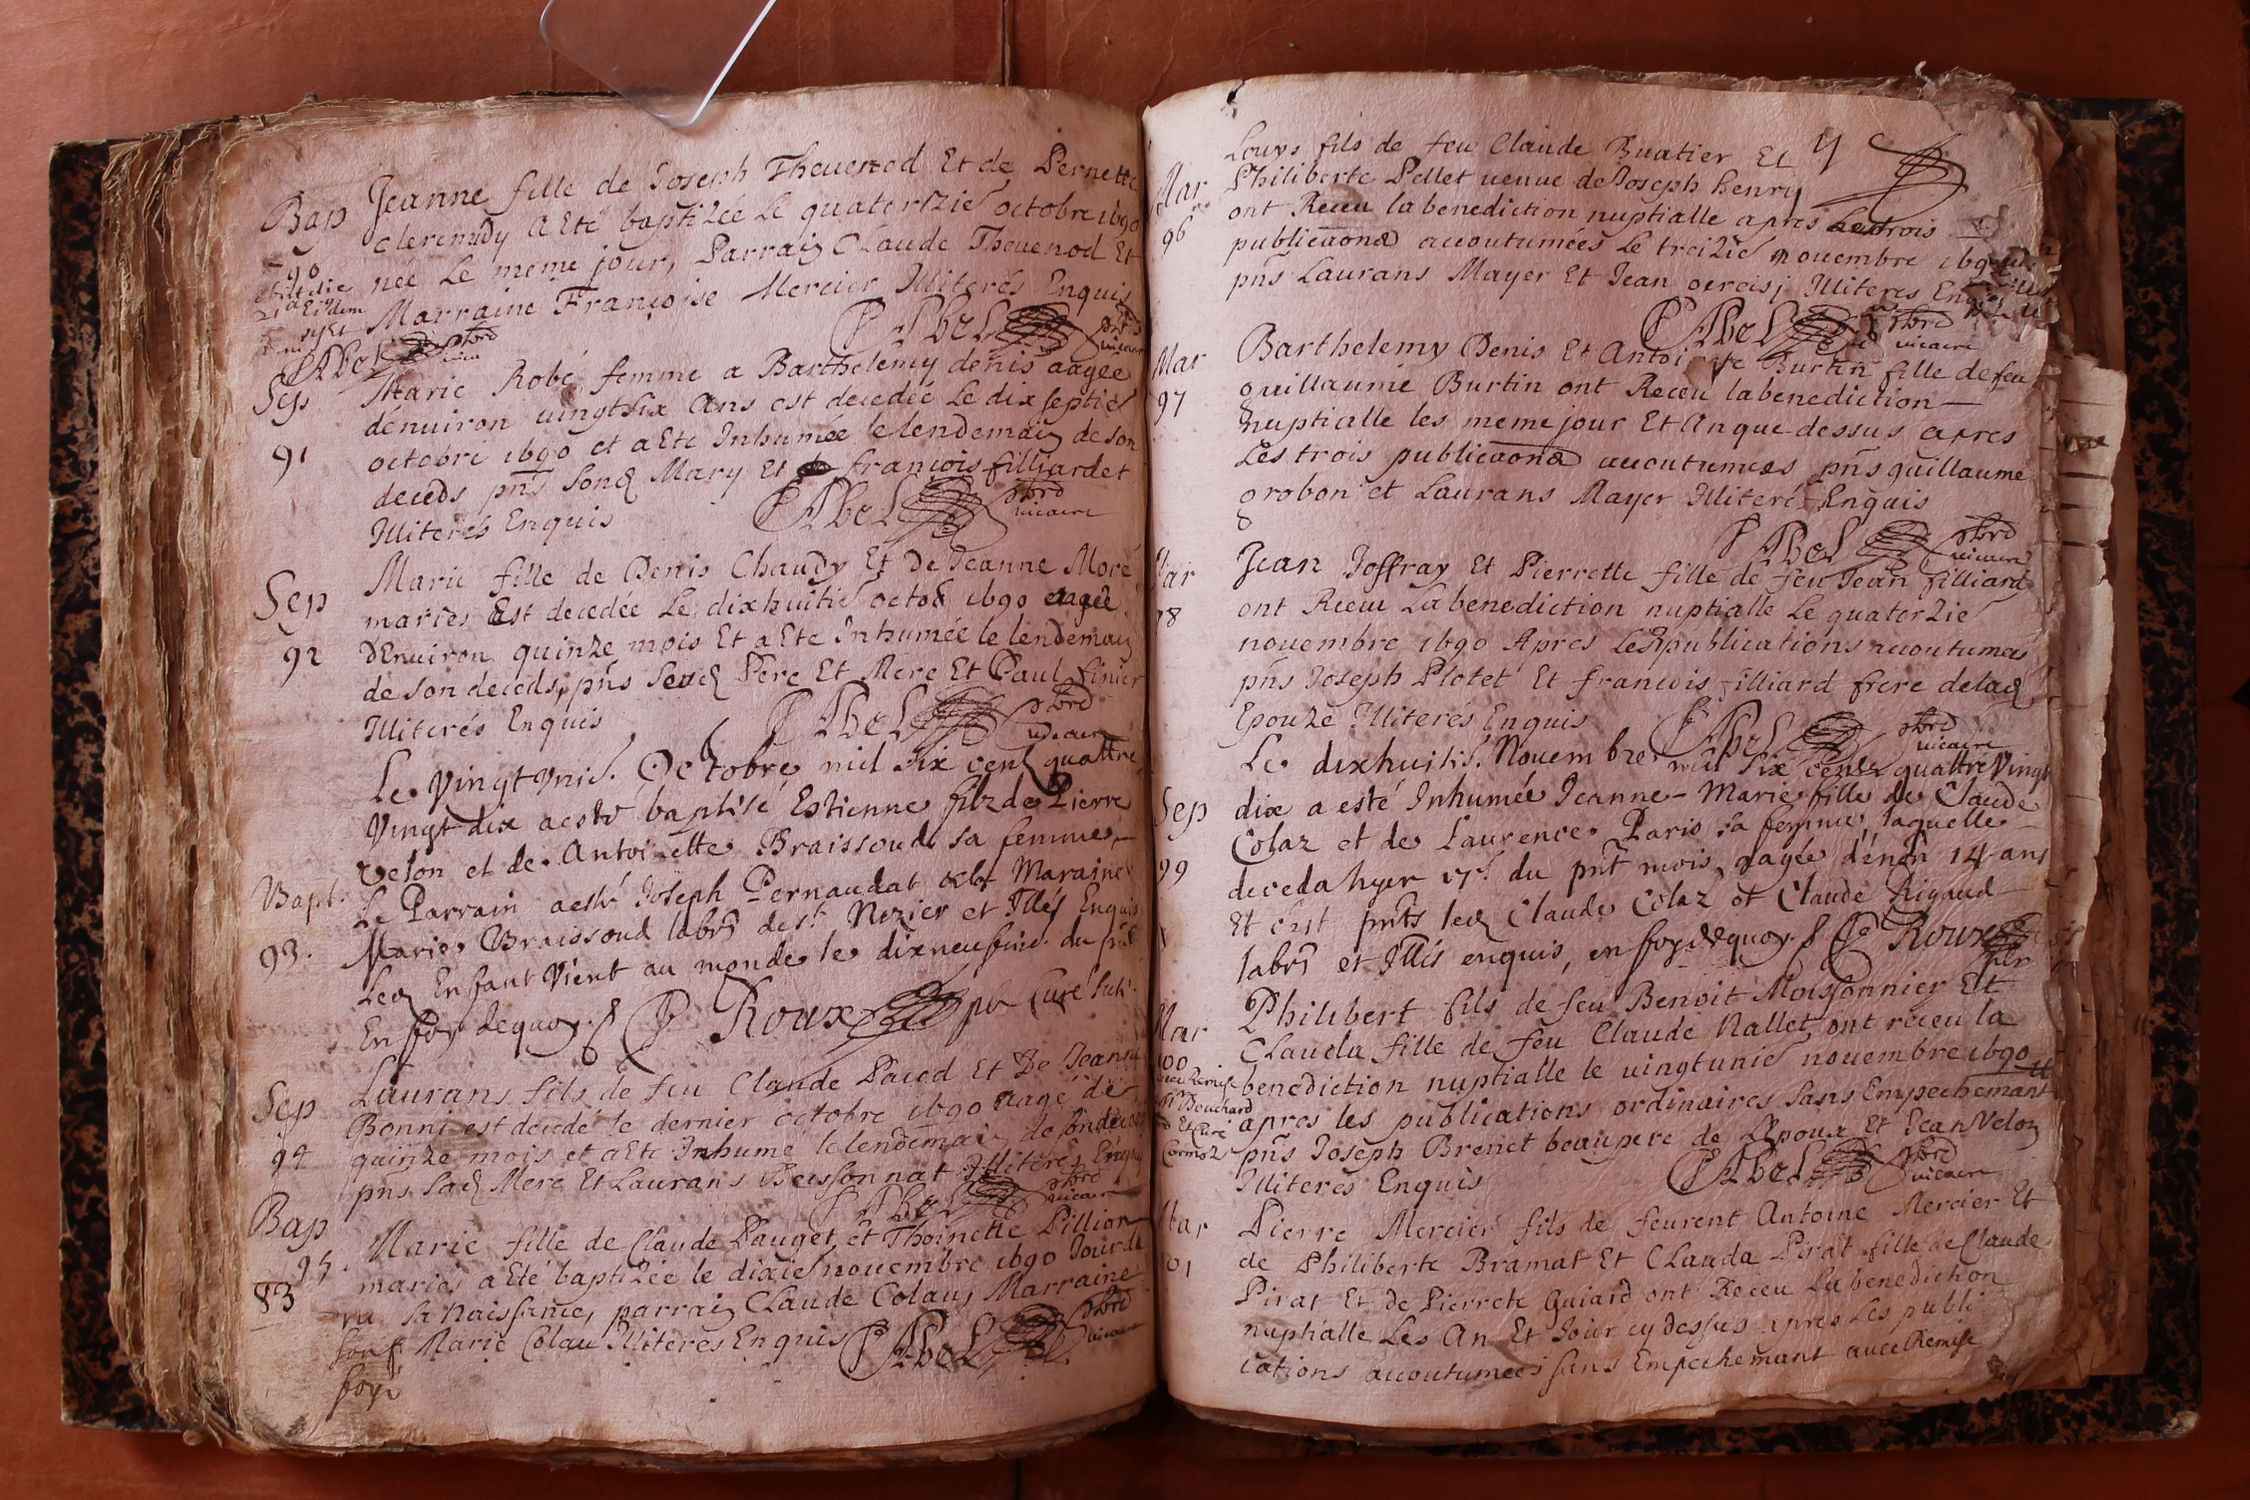 Bap
90
Jeanne fille de Joseph Theuenod Et de Pernette
clerenudy a Eté baptizée Le quatorzie octobre 1690
née Le meme jour, Parrain Claude Theuenod Et
Marraine Françoise Mercier Illiterés Enquis
P Abel pbre vicaire
Sep
91
Marie Robé femme a Barthelemy denis aagée
dénuiron uingtsix ans est decedée Le dix septie
octobre 1690 et a Ete Inhumée le lendemain de son
deceds pns Sond Mary et françois filliardet
Illiterés Enquis
P Abel pbre vicaire
Sep
92
Marie fille de Denis Chaudy Et De Jeanne Moré
mariés Est decedée Le dixhuitie octob 1690 aagée
dEnuiron quinze mois Et a Ete Inhumée le lendemain
de son deceds, pns Sesd Pere Et Mere Et Paul finier
Illiterés Enquis
P Abel pbre vicaire
Bapt.
93.
Le Vingt Unie. Octobre mil six cent quattre
Vingt dix a esté baptisé Estienne filz de Pierre
Velon et de Antoinette Braissoud sa femme
Le Parrain a esté Joseph Pernaudat et la Maraine
Marie Braissoud labrs de st Nizier et Illes Enquis
Led Enfant Vient au monde le dixneufuie. du pnt
En foy dequoy P Roux pbr Curé
Sep
94
Laurans fils de feu Claude Pacod Et De Jeanne
Bonni est decedé le dernier octobre 1690 aagé de
quinze mois et a Ete Inhumé le lendemain de son deceds
pns Sad Mere Et Laurans Beissonnat Illiterés Enquis
P Abel pbre vicaire
Bap
95.
83
Marie fille de Claude Pauget et Thoinette Pillion
mariés a Eté baptizée le dixie nouembre 1690 Jour de
sa naissance, parrain Claude Colau, Marraine
Marie Colau Illiteres Enquis P Abel pbre vicaire
Mar
96
Louys fils de feu Claude Buatier Et
Philiberte Pellet ueuue de Joseph henry
ont Receu la benediction nuptialle apres Les trois
publicaons accoutumées Le treizie nouembre
pns Laurans Mayer Et Jean Illiteres Enquis
P Abel pbre vicaire
Mar
97
Barthelemy Denis Et Antoinette Burtin fille de feu
guillaume Burtin ont Receu la benediction
nuptialle les meme jour Et An que dessus apres
Les trois publicaons accoutumées pns guillaume
grobon et Laurans Mayer Illiteré Enquis
P Abel pbre vicaire
Mar
98
Jean Joffray Et Pierrette fille de feu Jean filliard
ont Receu La benediction nuptialle Le quatorzie
nouembre 1690 Apres Les publications accoutumées
pns Joseph Plotet Et francois filliard frere de lad
Epouze Illiterés Enquis
P Abel pbre vicaire
Sep
99
Le dixhuitie. Nouembre mil six cents quattre Vingt
dix a esté Inhumée Jeanne-Marie fille de Claude
Colaz et de Laurence Paris sa femme, laquelle
deceda hyer 17e. du pnt mois, aagée d'enon 14 ans
Et c'est pnts led Claude Colaz et Claude Rigaud
labrs et Illés enquis, en foy dequoy P Roux
Mar
100
Philibert fils de feu Benoit Moissonnier Et
Clauda fille de feu Claude Nallet ont receu la
benediction nuptialle le uingtunie nouembre 1690
apres les publications ordinaires sans Empechemant
pns Joseph Brenet beaupere de L'Epoux Et Jean Velon
Illiteres Enquis
P Abel pbre vicaire
Mar
101
Pierre Mercier fils de feurent Antoine Mercier Et
de Philiberte Bramat Et Clauda Pirat fille de Claude
Pirat Et de Pierrete Guiard ont Receu La benediction
nuptialle Les An Et Jour cy dessus apres Les publi
cations accoutumees sans Empechemant auec Remise